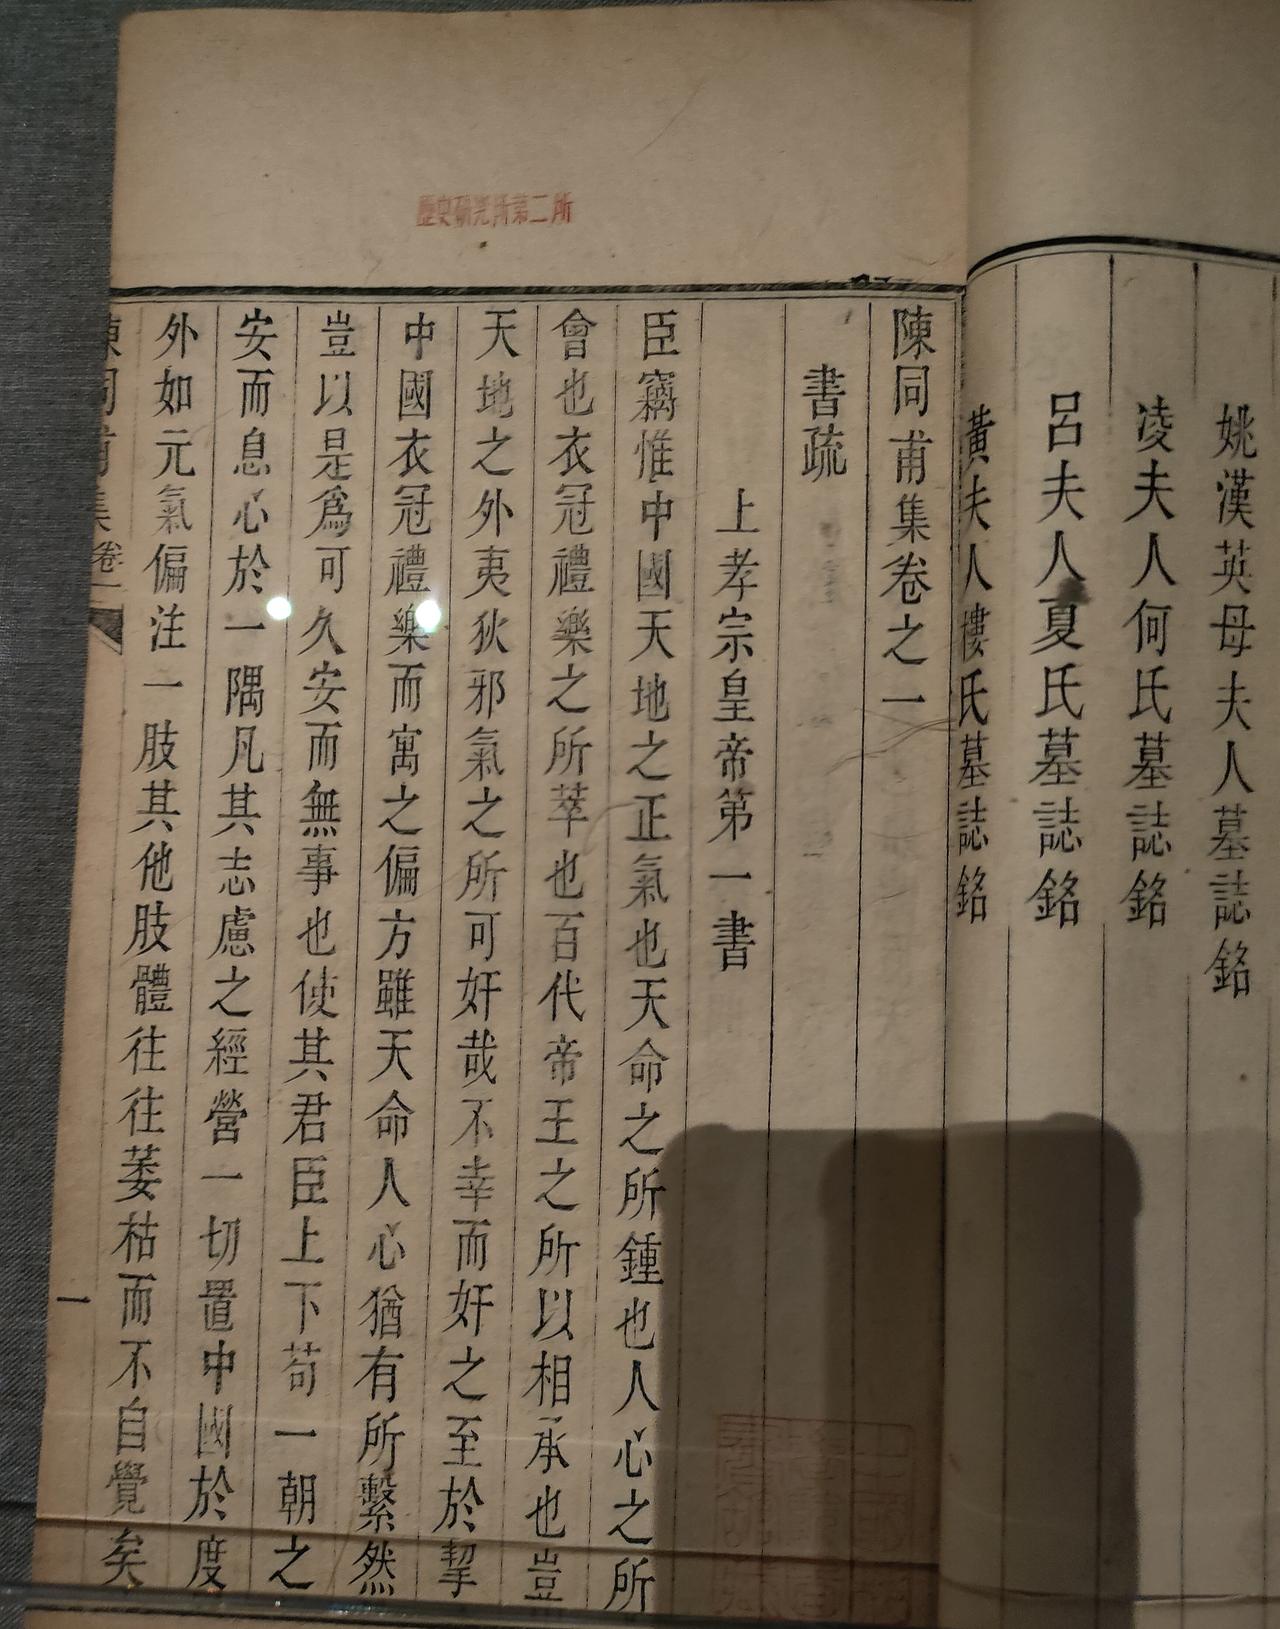 歷史研究所第二所
姚漢英母夫人墓誌銘
凌夫人何氏墓誌銘
呂夫人夏氏墓誌銘
黃夫人樓氏墓誌銘
陳同甫集卷之一
書疏
上孝宗皇帝第一書
臣竊惟中國天地之正氣也天命之所鍾也人心之所
會也衣冠禮樂之所萃也百代帝王之所以相承也豈
天地之外夷狄邪氣之所可奸哉不幸而奸之至於挈
中國衣冠禮樂而寓之偏方雖天命人心猶有所繫然
豈以是爲可久安而無事也使其君臣上下苟一朝之
安而息心於一隅凡其志慮之經營一切置中國於度
外如元氣偏注一肢其他肢體往往萎枯而不自覺矣
陳同甫集
卷一
一